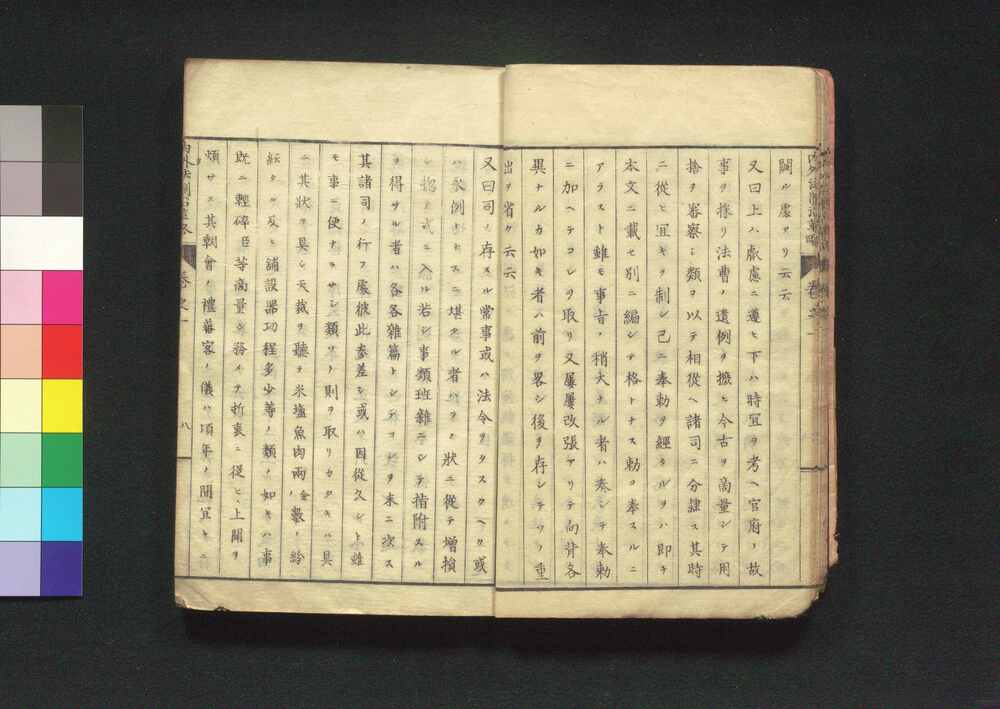 闕ル處アリ云云
又曰上ハ叡慮ニ遵ヒ下ハ時宜ヲ考ヘ官府ノ故
事ヲ採リ法曹ノ遺例ヲ摭ヒ今古ヲ商量シテ用
捨ヲ審察シ類ヲ以テ相從ヘ諸司ニ分隷ス其時
ニ從ヒ宜キヲ制シ已ニ奉勅ヲ經タルヲハ即チ
本文ニ載セ別ニ編シテ格トナス勅ヲ奉スルニ
アラスト雖モ事旨ノ稍大ナル者ハ奏シテ奉勅
ニ加ヘテコレヲ取リ又屢屢改張アリテ向背各
異ナルカ如キ者ハ前ヲ畧シ後ヲ存シテソノ重
出ヲ省ク云云
又曰司ノ存スル常事或ハ法令ヲタスクヘク或
ハ永例ナスニ堪タル者ハソノ狀ニ從テ增損
シ 式ニ入ル若シ事類班雜ニシテ指附スル
ヲ得サル者ハ各各雜篇トシテコレヲ末ニ次ス
其諸司ノ行フ處彼此參差シ或ハ因從久シト雖
モ事ニ便ナラサシ類ヲノ則ヲ取リカタキハ具
ニ其狀ヲ具シ天裁ヲ聽ク米塩魚肉兩金數ノ給
紙タク及ヒ鋪設器功程多少等ノ類ノ如キハ事
既ニ輕碎臣等商量シ務メテ折衷ニ從ヒ上聞ヲ
煩サス其朝會ノ禮蕃客ノ儀ハ項年ノ間宜キニ
卷之一
八